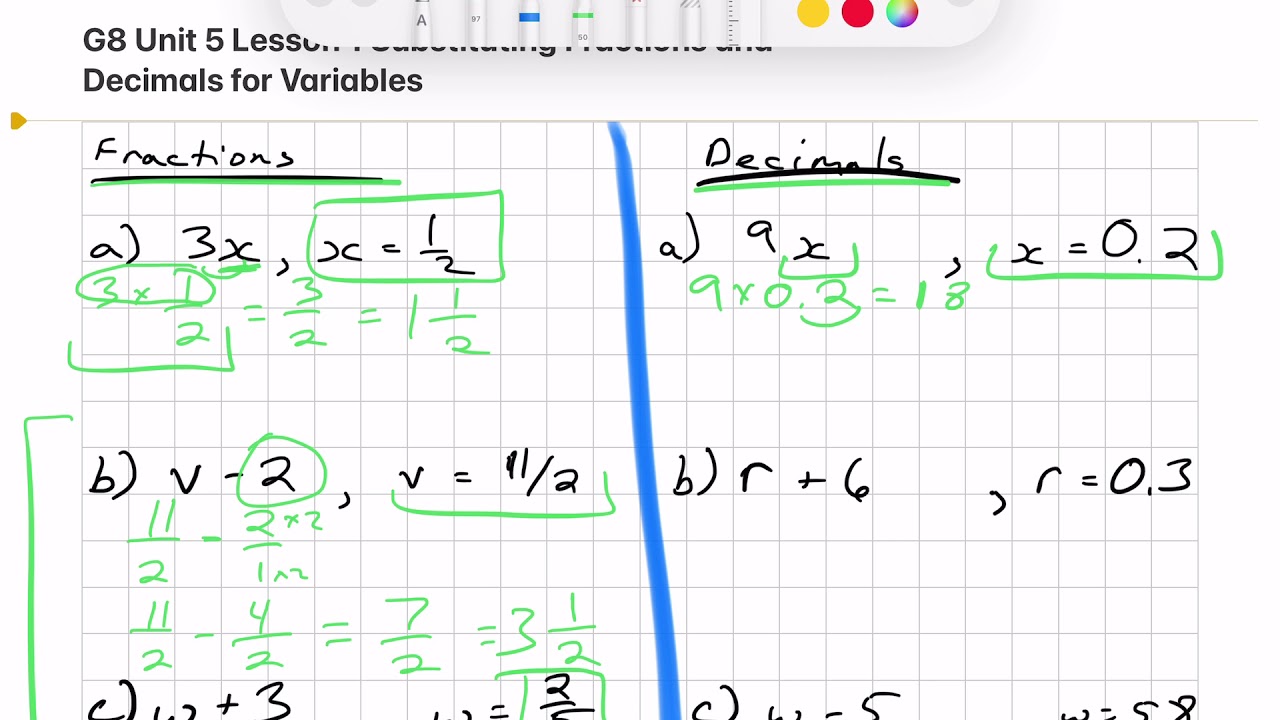 G8 Unit 5 Lesson Substituting Fractions and
Decimals for Variables
A
97
50
Fractions
a) 3x, x = 1/2
3 × 1/2 = 3/2 = 1 1/2
b) v - 2, v = 11/2
11/2 - 2×2/1×2
11/2 - 4/2 = 7/2 = 3 1/2
c) w + 3 w =
Decimals
a) 9x, x = 0.2
9 × 0.2 = 18
b) r + 6, r = 0.3
c) - 5 = 5.8